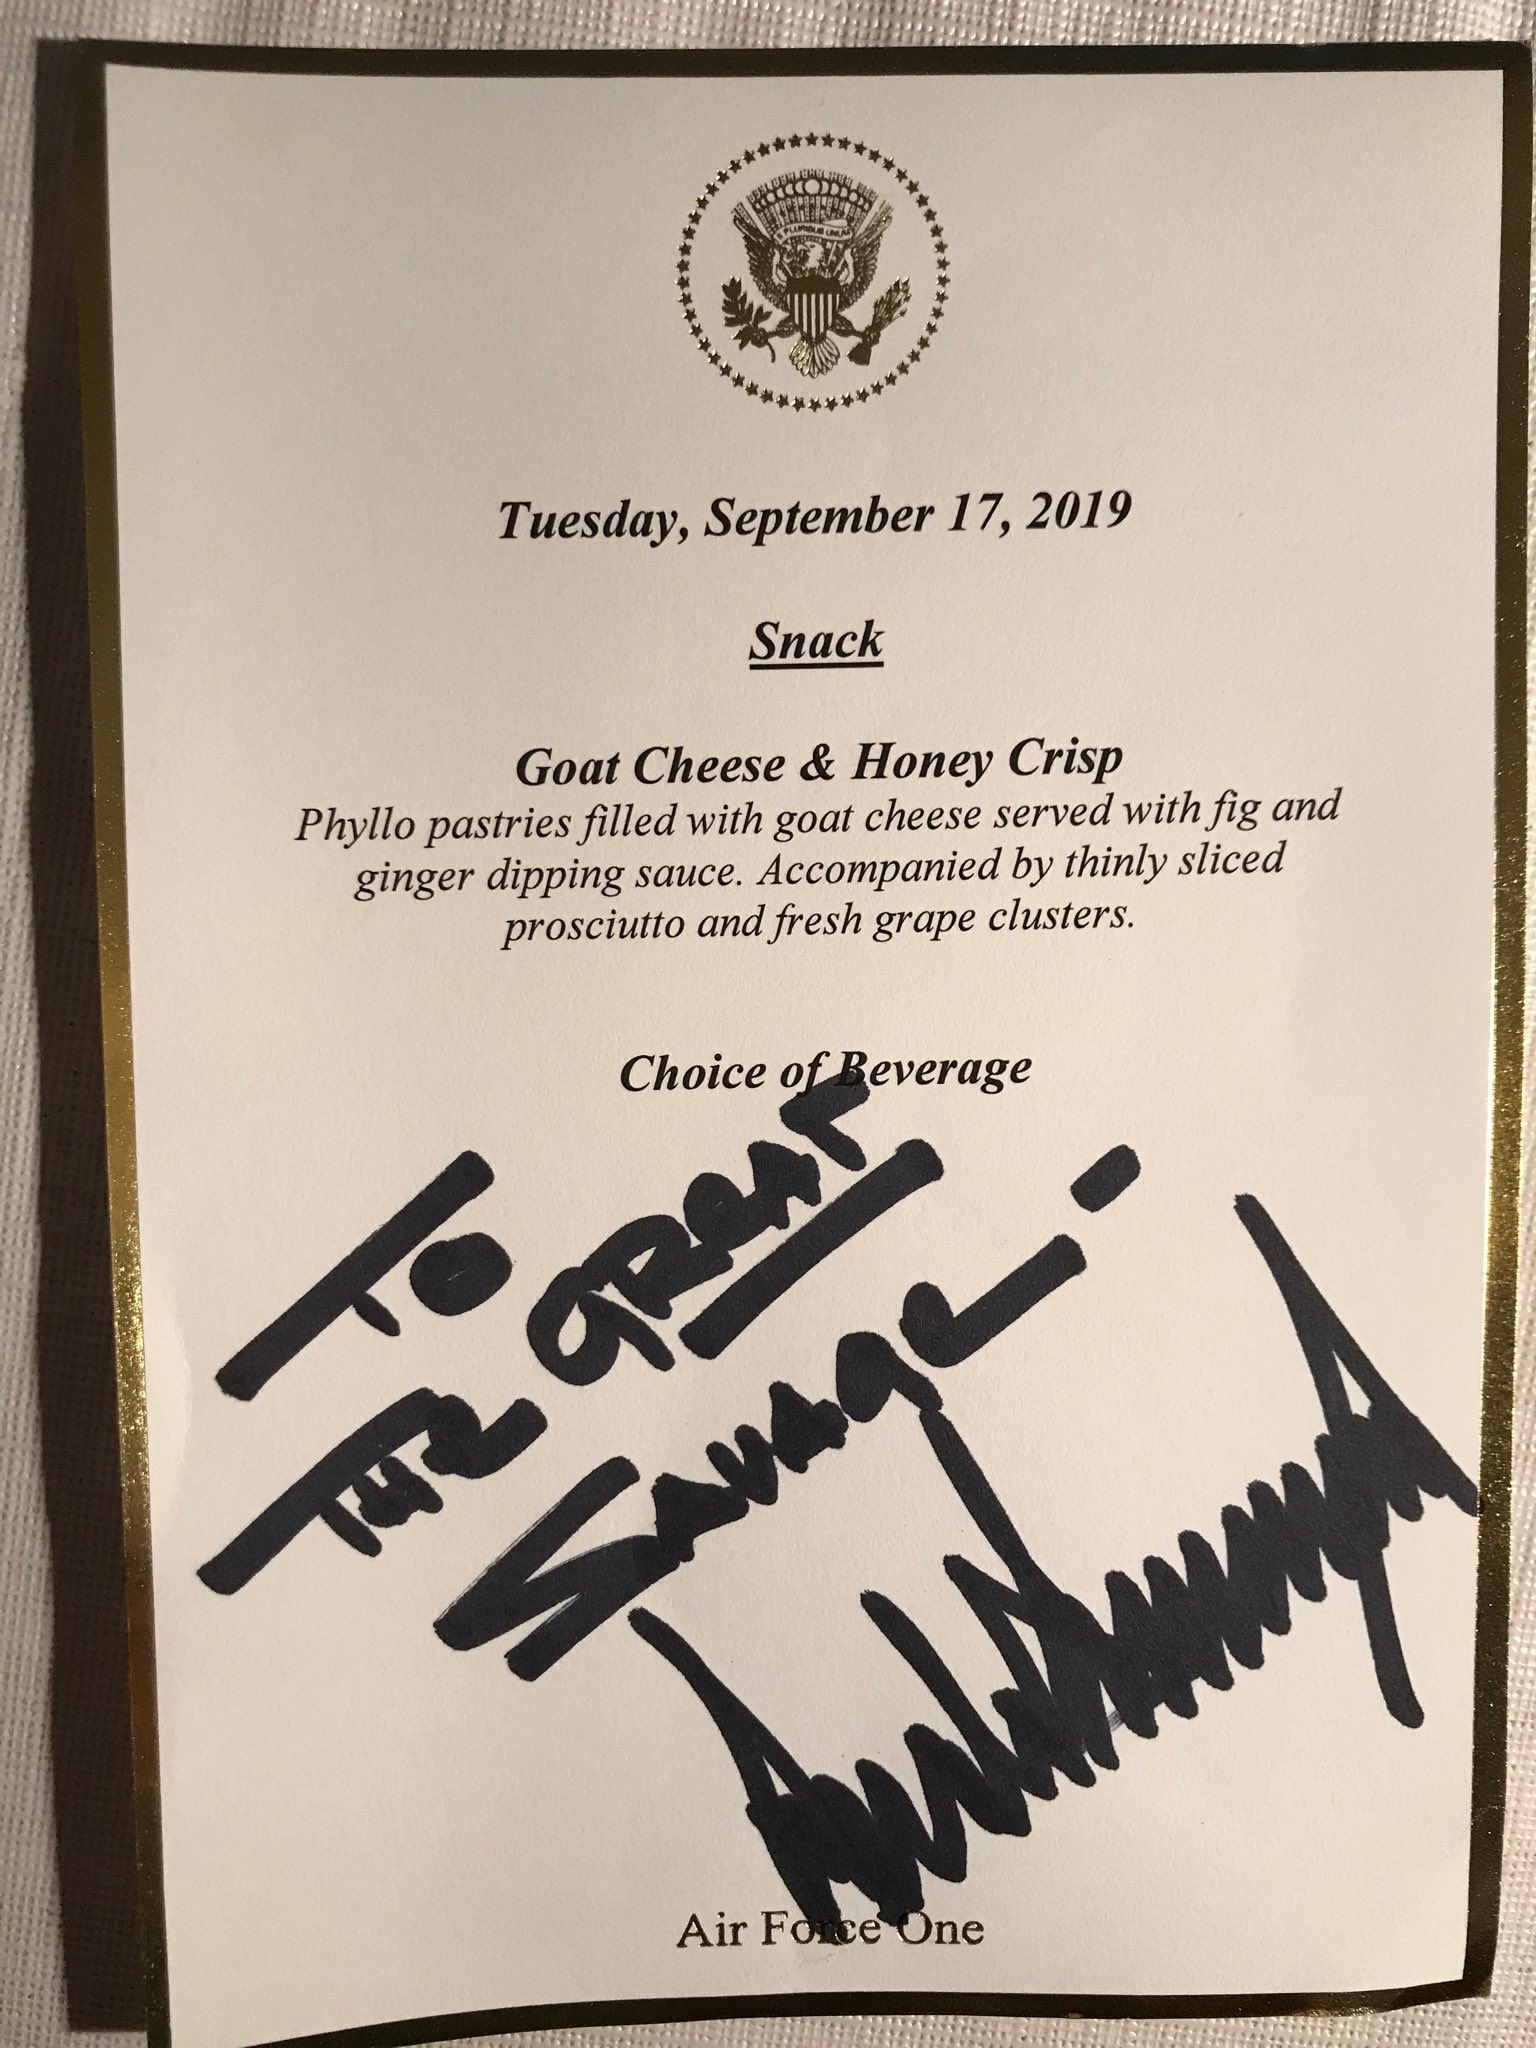 E PLURIBUS UNUM
Tuesday, September 17, 2019
Snack
Goat Cheese & Honey Crisp
Phyllo pastries filled with goat cheese served with fig and
ginger dipping sauce. Accompanied by thinly sliced
prosciutto and fresh grape clusters.
Choice of Beverage
TO
THE GREAT
SAVAGE
Air Force One